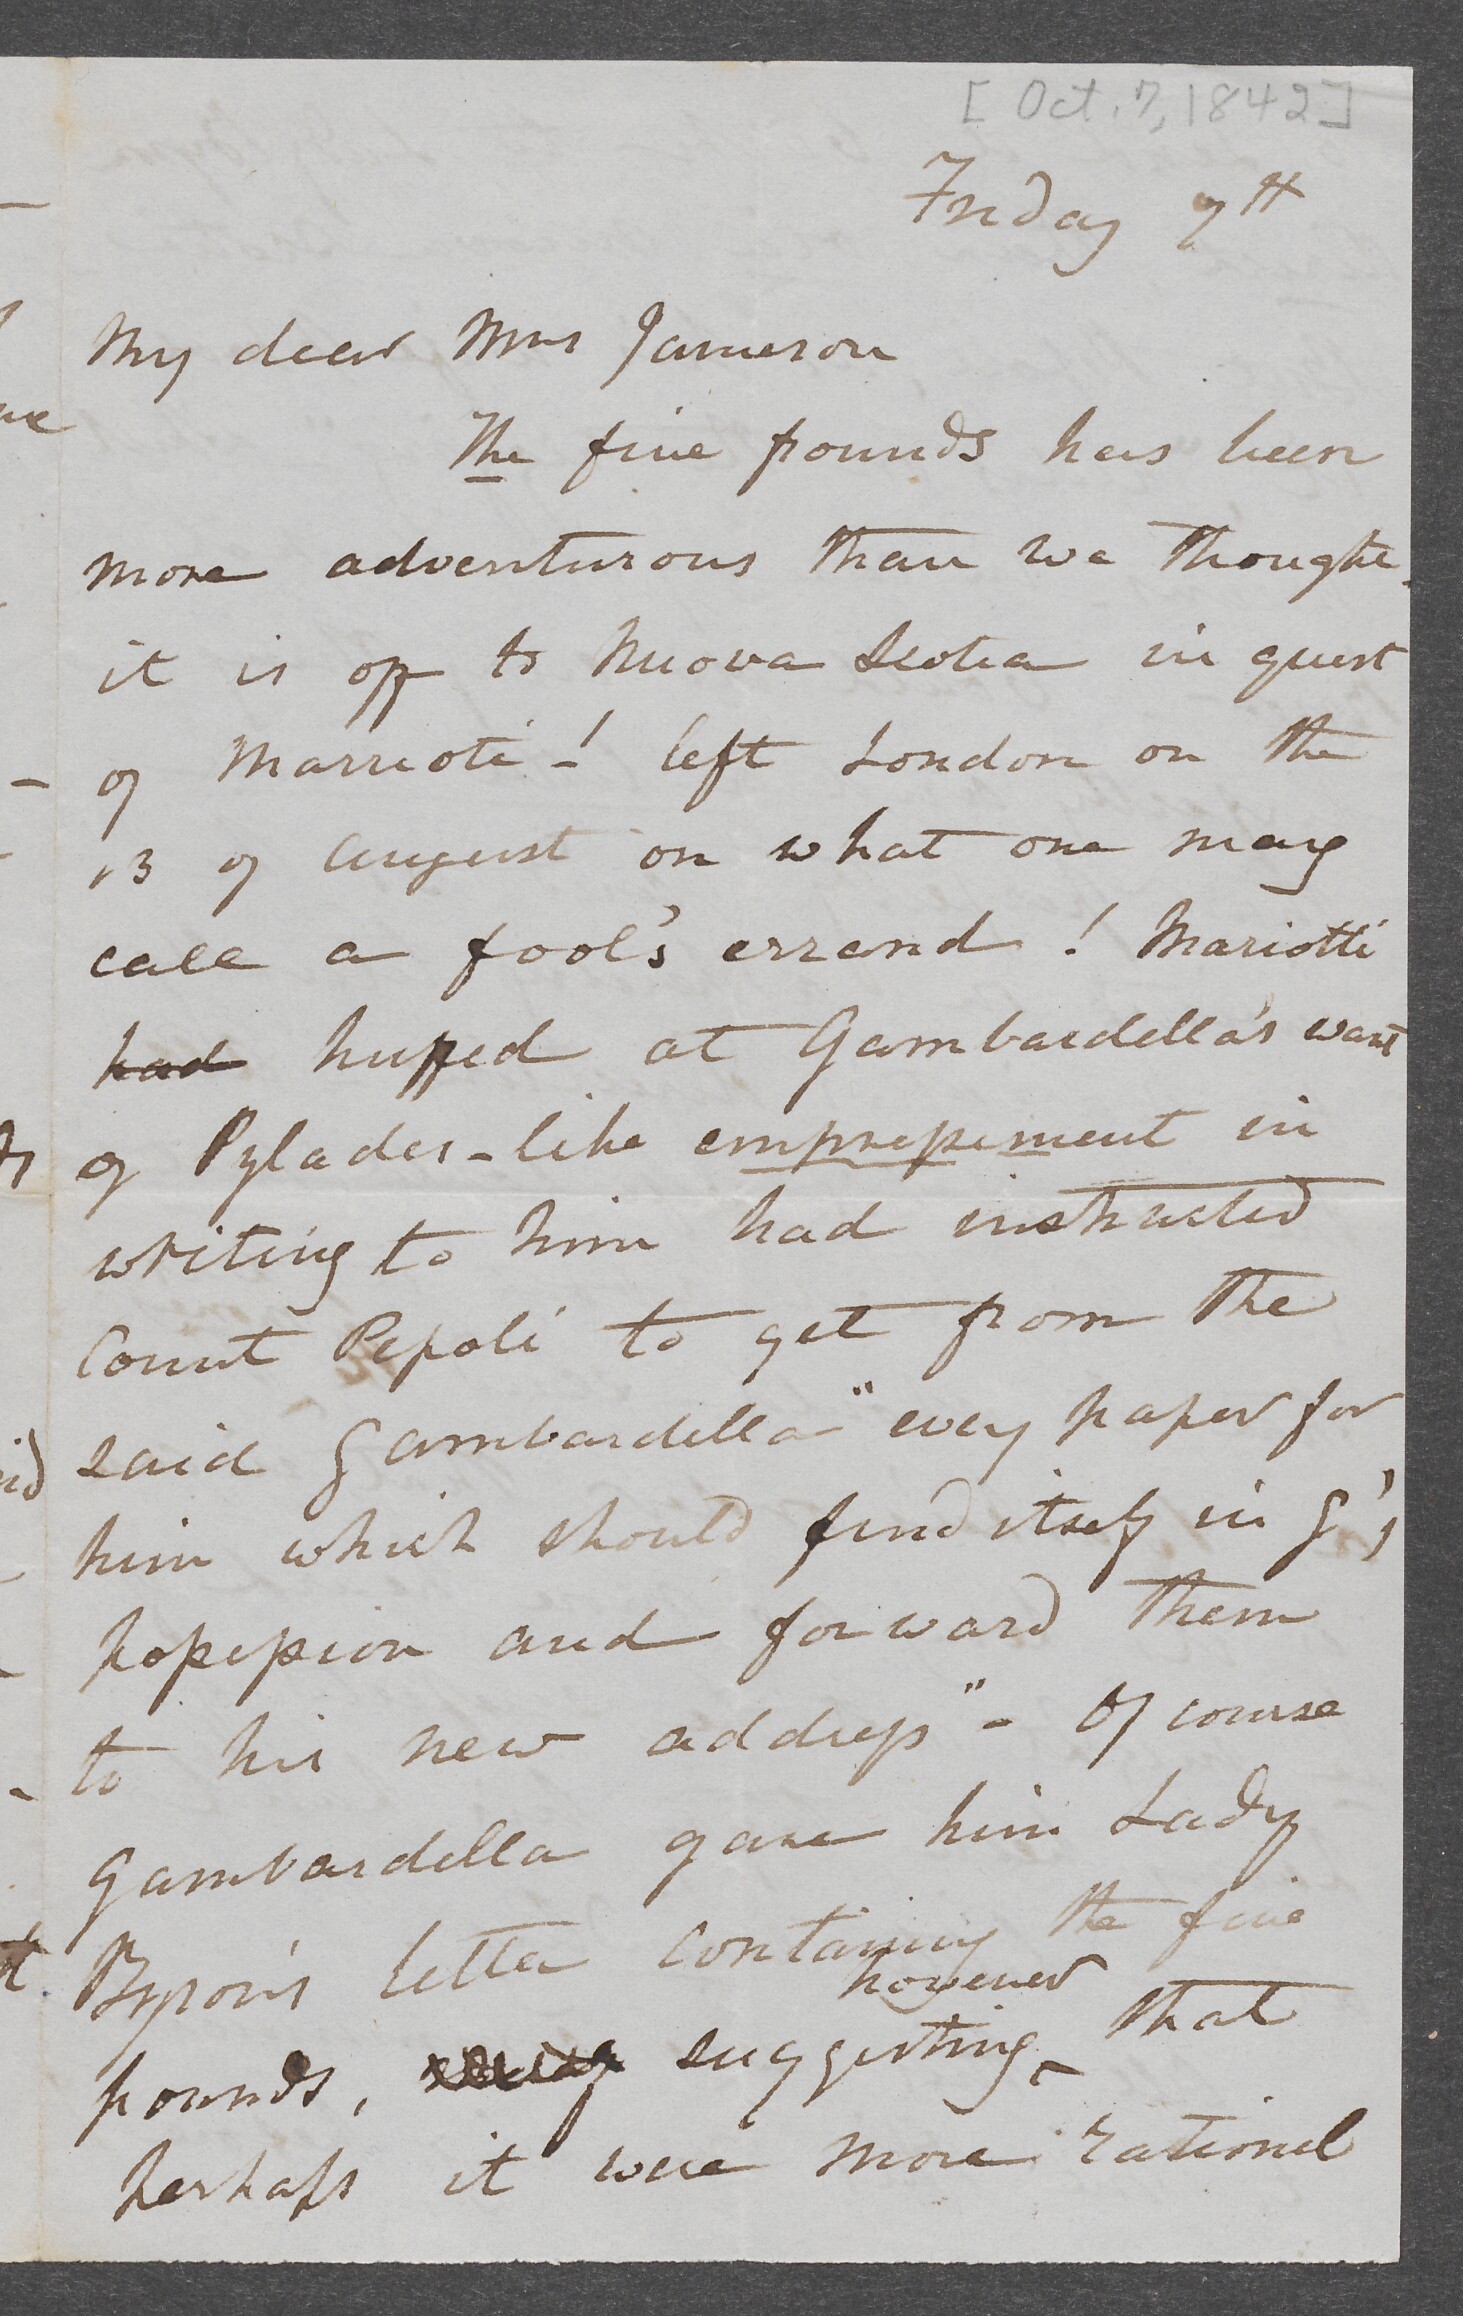 [Oct. 7, 1842]
Friday 7th
My dear Mrs Jameson
The five pounds has been
more adventurous than we thought.
it is off to Nuova Scotia in quest
of Marrioti - ! left London on the
13 of August on what one may
call a fool's errand ! Mariotti
had huffed at Gambardella's want
of Pylades-like empressement in
writing to him had instructed
Count Pepoli to get from the
said Gambardella "every paper for
him which should find itself in G's
possession and forward them
to his new address" - Of course
Gambardella gave him Lady
Byron's letter containing the five
however
pounds, suggesting that
perhaps it were more rational